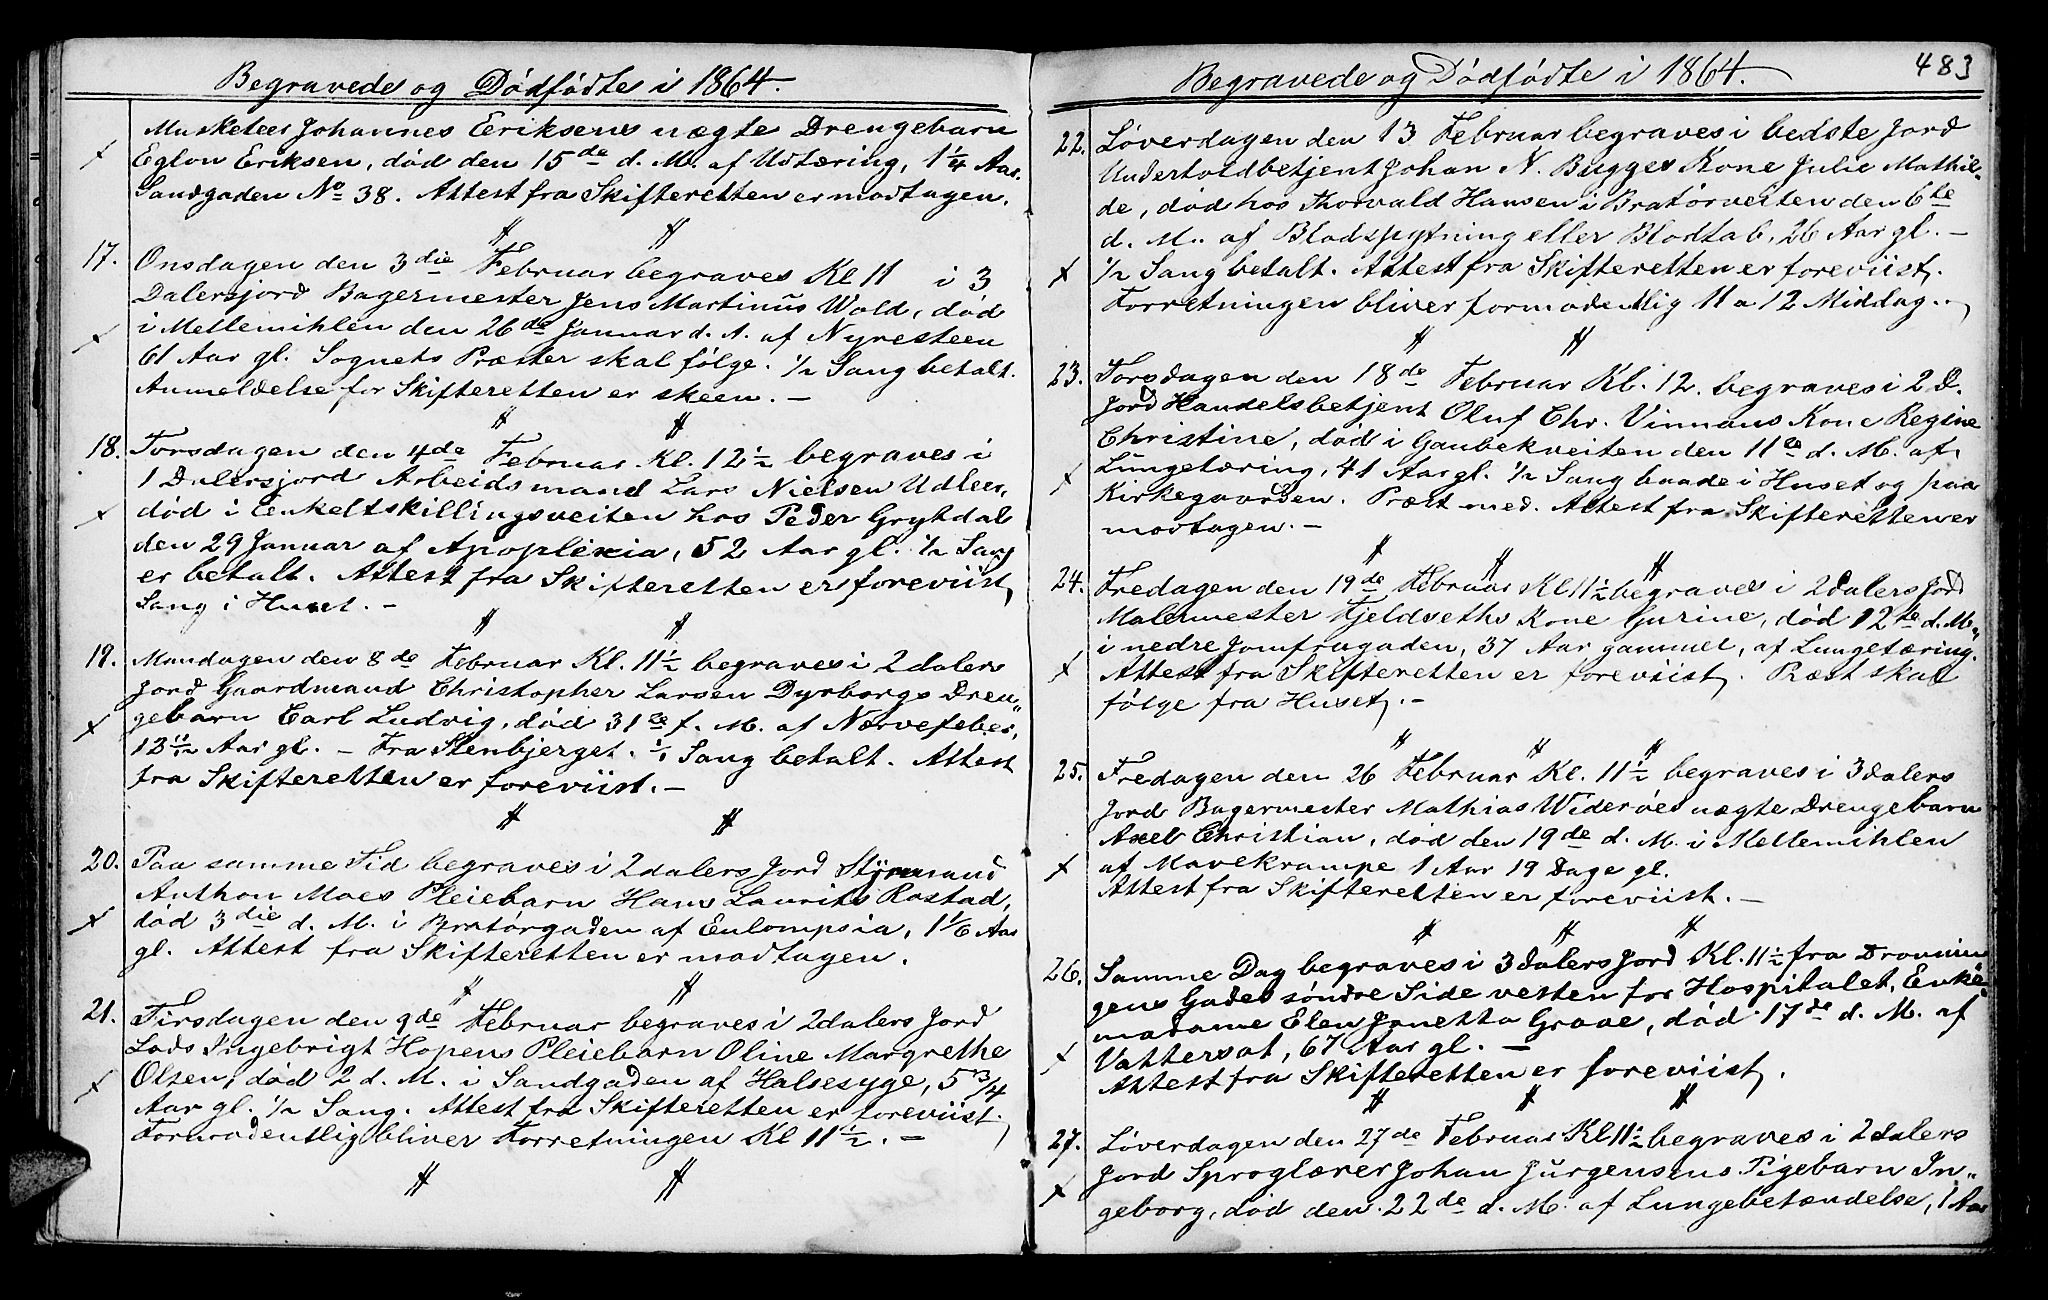 Begravede og Dødfødte i 1864.
Musketeer Johannes Eriksens uægte Drengebarn
Eglon Eriksen, død den 15de d. M. af Udtæring, 1 1/4 Aar.
Sandgaden No 38. Attest fra Skifteretten er modtagen.
17. Onsdagen den 3die Februar begraves Kl 11 i 3
Dalersjord Bagermester Jens Martinus Wold, død
i Mellemihlen den 26de Januar d. A. af Nyresteen
61 Aar gl. Sognets Præster skal følge. 1/2 Sang betalt.
Anmeldelse for Skifteretten er skeen. —
18. Torsdagen den 4de Februar Kl. 12 1/2 begraves i
1 Dalersjord Arbeidsmand Lars Nielsen Udleer,
død i Enkeltskillingsveiten hos Peder Grytdal
den 29 Januar af Apoplexia, 52 Aar gl. 1/2 Sang
er betalt. Attest fra Skifteretten er foreviist,
Sang i Huset. —
19. Mandagen den 8de Februar Kl. 11 1/2 begraves i 2 dalers
Jord Gaardmand Christopher Larsen Dyrborgs Dren„
gebarn Carl Ludvig, død 31te f. M. af Nervefeber,
13 1/12 Aar gl. — Fra Stenbjerget. 1/1 Sang betalt. Attest
fra Skifteretten er foreviist. —
20. Paa samme Tid begraves i 2 dalers Jord Styrmand
Anthon Moes Pleiebarn Hans Laurits Rostad,
død 3die d. M. i Bratørgaden af Eulompsia, 1 1/6 Aar
gl. Attest fra Skifteretten er modtagen.
21. Tirsdagen den 9de Februar begraves i 2 dalers Jord
Lods Ingebrigt Hopens Pleiebarn Oline Margrethe
Olsen, død 2 d. M. i Sandgaden af Halsesyge, 5 3/4
Aar gl. 1/2 Sang. Attest fra Skifteretten er foreviist.
Formodentlig bliver Forretningen Kl 11 1/2. —
Begravede og Dødfødte i 1864.
483
22. Løverdagen den 13 Februar begraves i bedste Jord
Undertoldbetjent Johan N. Bugges Kone Julie Mathil-
de, død hos Thorvald Hansen i Bratørveiten den 6te
d. M. af Blodspytning eller Blodtab, 26 Aar gl. —
1/2 Sang betalt. Attest fra Skifteretten er foreviist.
Forretningen bliver formodentlig 11 a 12 Middag.
23. Torsdagen den 18de Februar Kl. 12. begraves i 2 D.
Jord Handelsbetjent Oluf Chr. Vinnans Kone Regine
Christine, død i Gaubekveiten den 11te d. M. af
Lungetæring, 41 Aar gl. 1/2 Sang baade i Huset og paa
Kirkegaarden. Præst med. Attest fra Skifteretten er
modtagen. —
24. Fredagen den 19de Februar Kl 11 1/2 begraves i 2 dalers Jord
Malermester Fjeldseths Kone Gurine, død 12te d. M.
i nedre Jomfrugaden, 37 Aar gammel, af Lungetæring.
Attest fra Skifteretten er foreviist. Præst skal
følge fra Huset. —
25. Fredagen den 26 Februar Kl. 11 1/2 begraves i 3 dalers
Jord Bagermester Mathias Widerøes uægte Drengebarn
Axel Christian, død den 19de d. M. i Mellemihlen
af Mavekrampe 1 Aar 19 Dage gl.
Attest fra Skifteretten er foreviist. —
26. Samme Dag begraves i 3 dalers Jord Kl. 11 1/2 fra Dronnin
gens Gades søndre Side vesten for Hospitalet, Enke„
madame Elen Janetta Graae, død 17de d. M. af
Vattersot, 67 Aar gl. —
Attest fra Skifteretten er foreviist.
27. Løverdagen den 27de Februar Kl 11 1/2 begraves i 2 dalers
Jord Sproglærer Johan Jürgensens Pigebarn In„
geborg, død den 22de d. M. af Lungebetændelse, 1 Aar